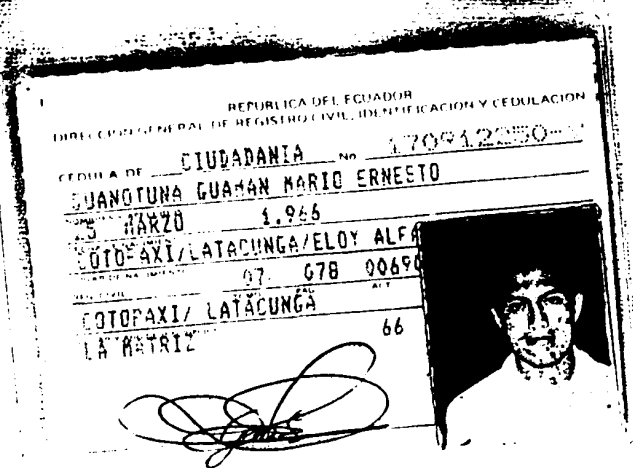 REPUBLICA DEL ECUADOR
DIRECCION GENERAL DE REGISTRO CIVIL, IDENTIFICACION Y CEDULACION
CEDULA DE CIUDADANIA No.
GUAMAN MARIO ERNESTO
MARZO 1.966
COTOPAXI/LATACUNGA/ELOY ALFA
07 078 00690
COTOPAXI/ LATACUNGA
LA MATRIZ 66